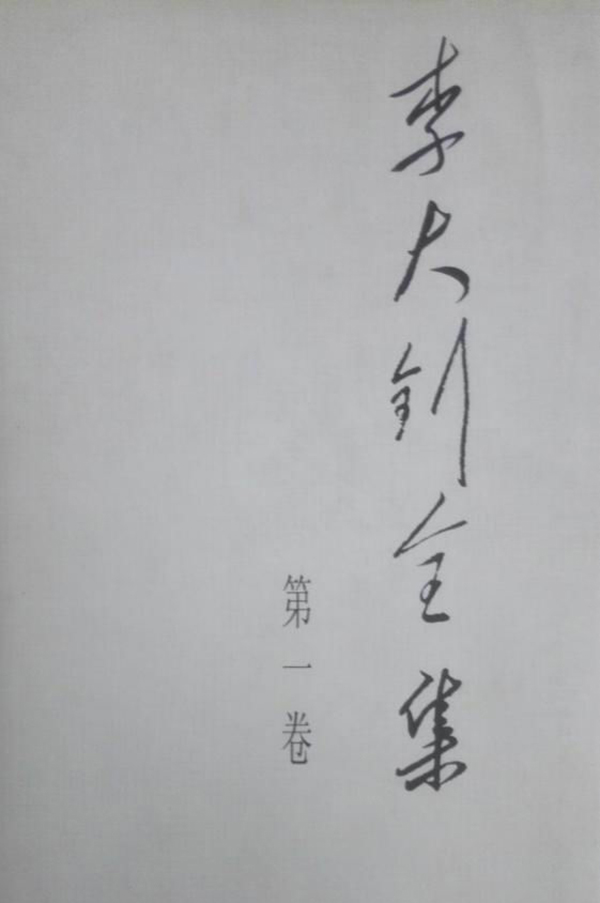 李大钊全集
第一卷